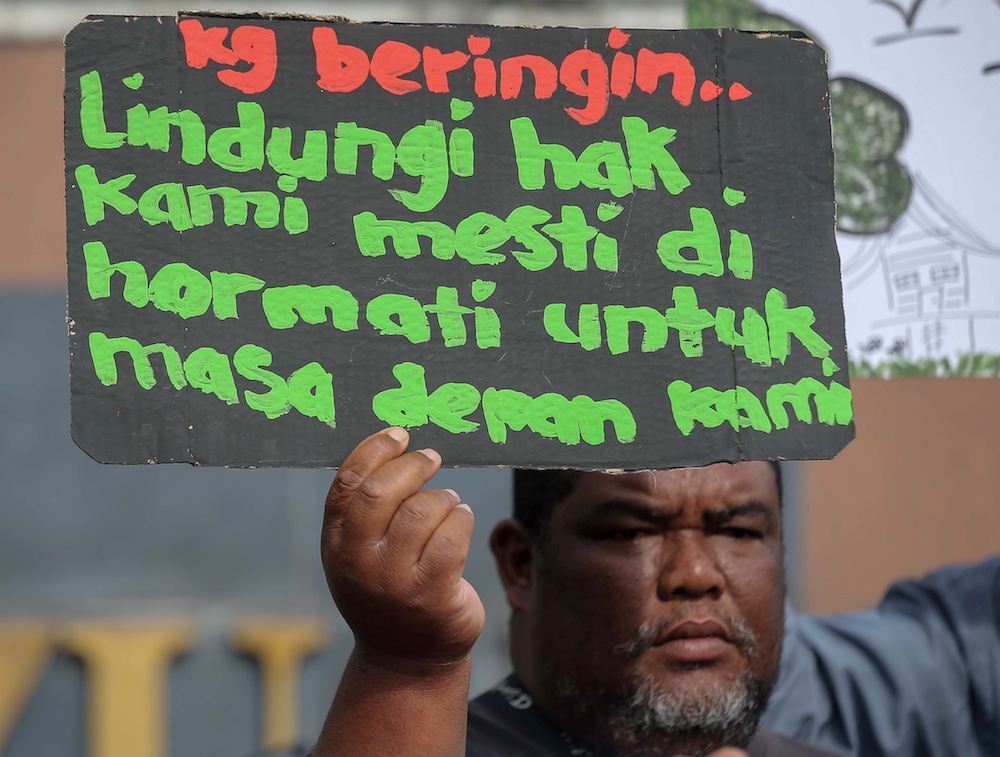 kg beringin..
Lindungi hak
kami mesti di
hormati untuk
masa depan kami